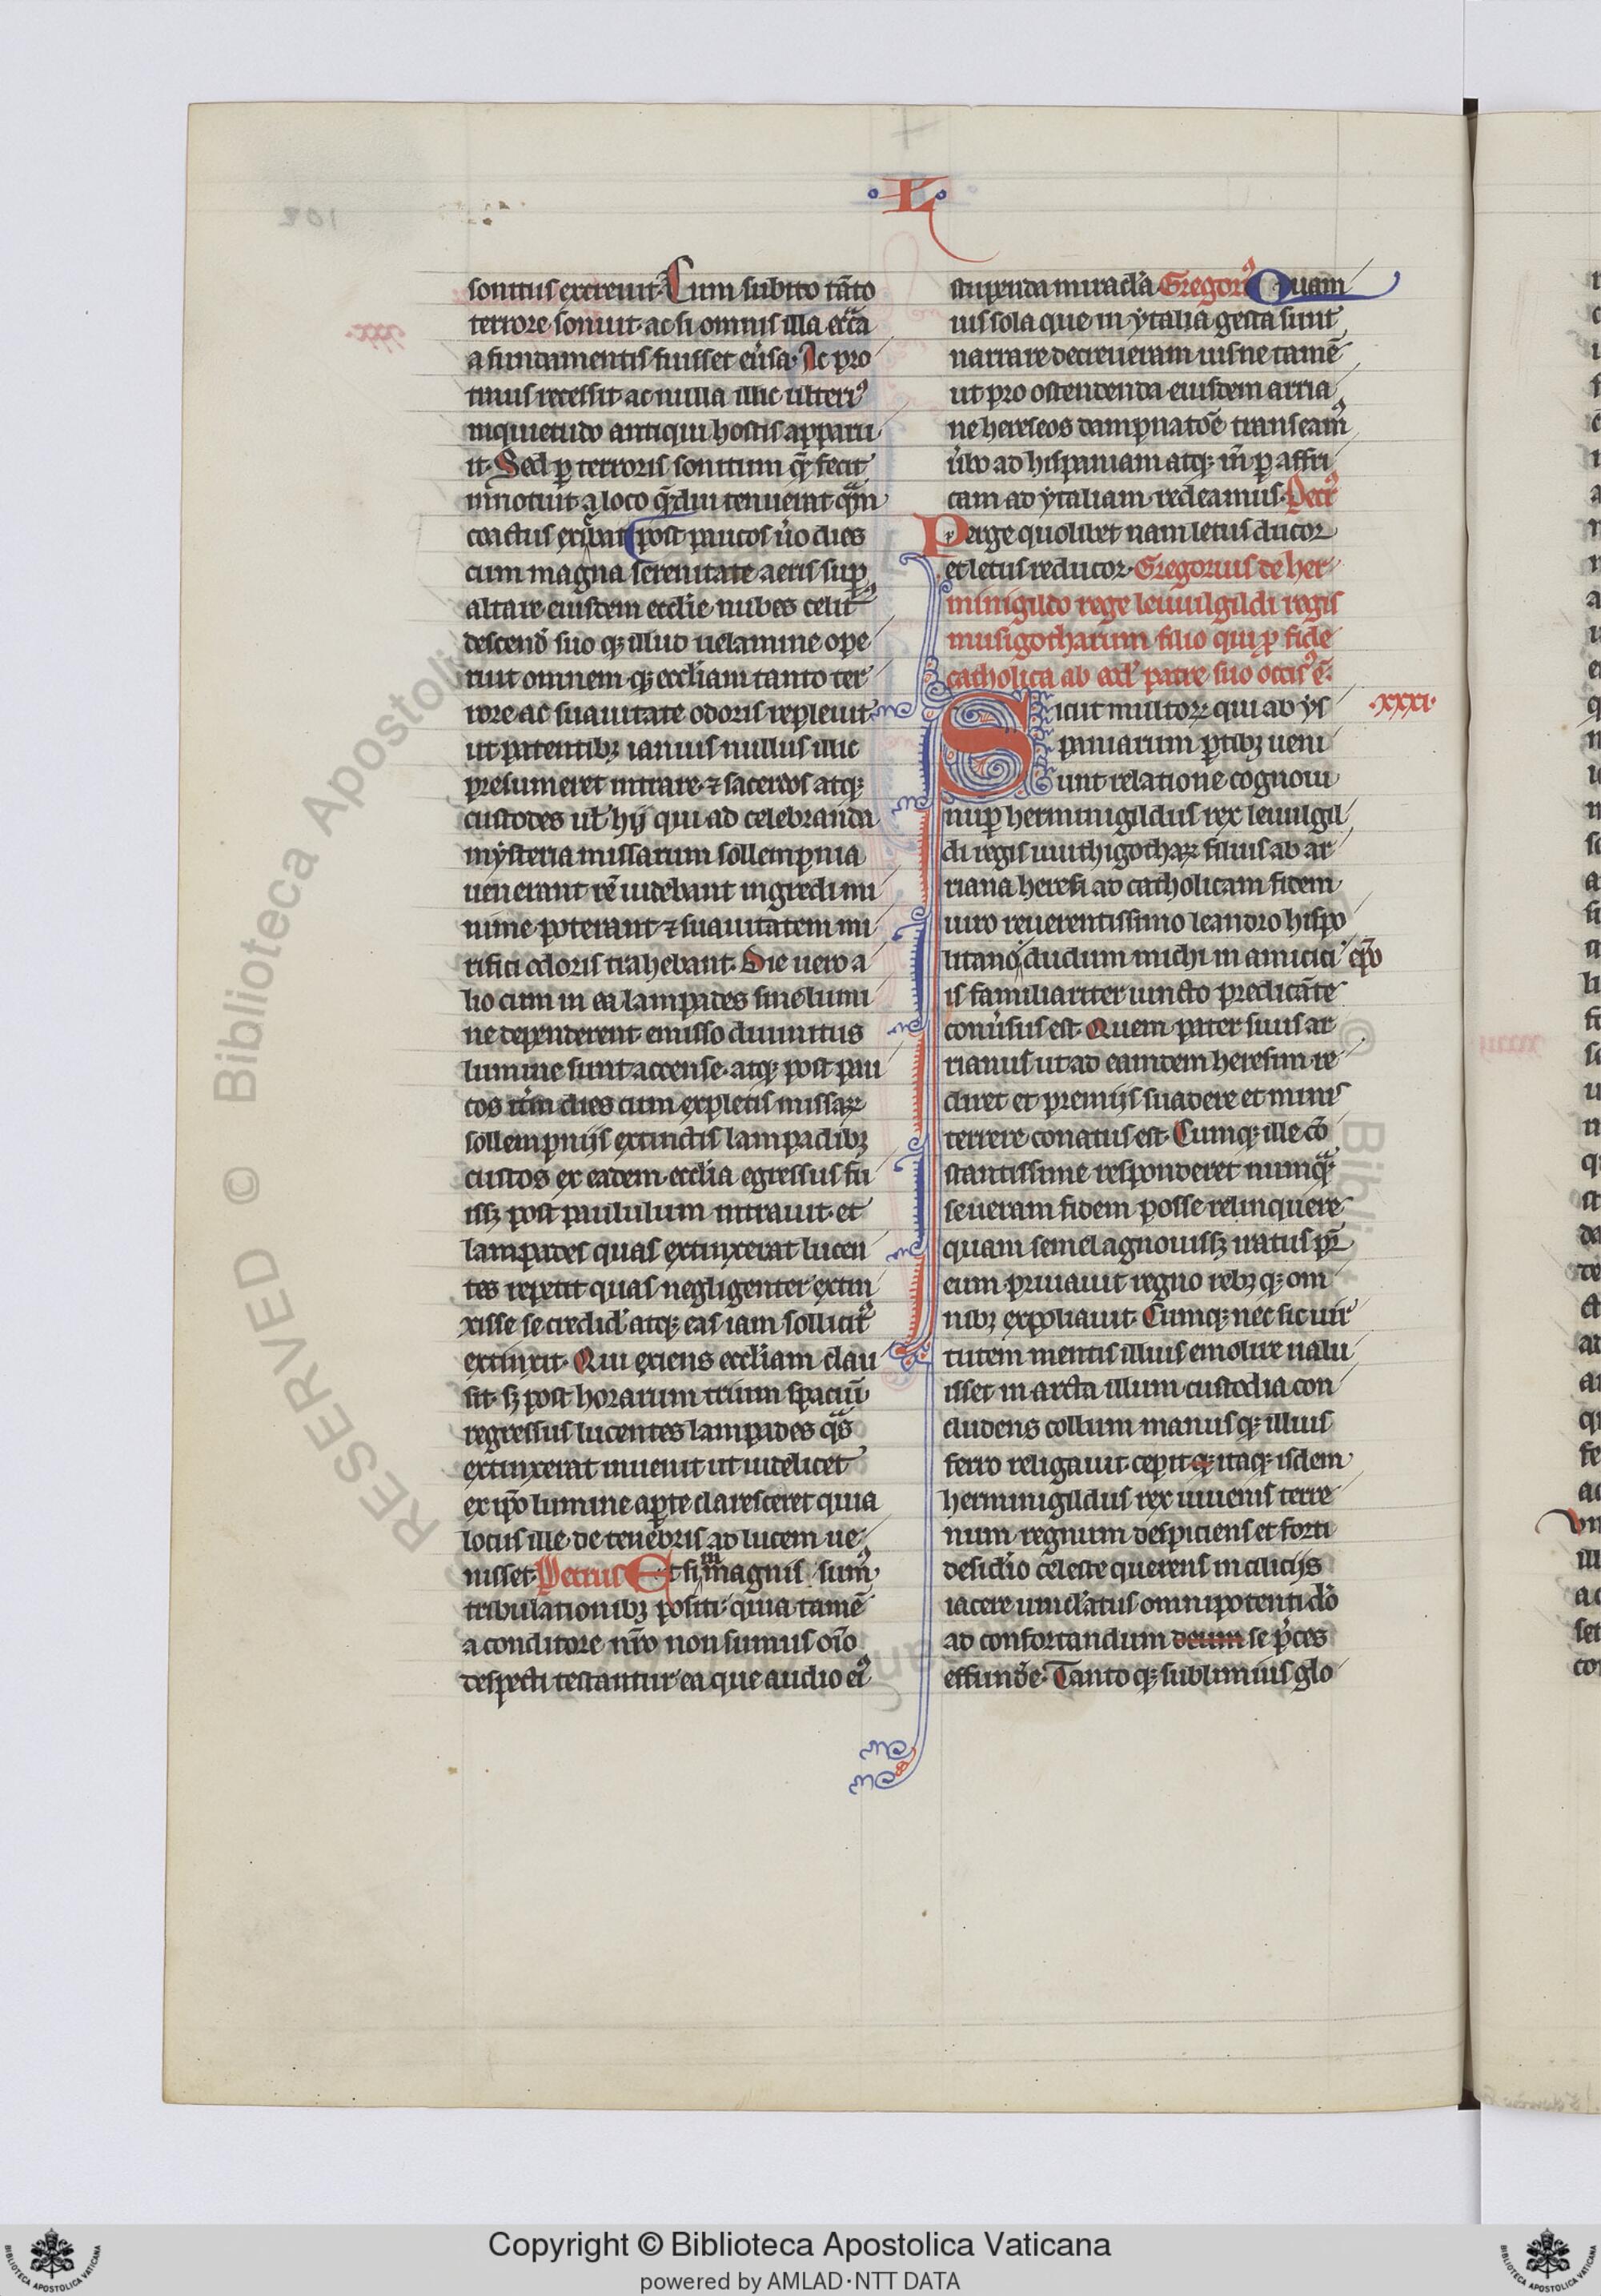 L
sonitus excreuit. Cum subito tāto
terrore sonuit. ac si omnis illa eccͣa
a fundamentis fuisset eu͛sa. Ac pro
tinus recessit ac nulla illic ulteriꝰ
inquietudo antiqui hostis apparu
it. Sed ꝑ terroris sonitum qͥē fecit
īnotuit a loco qͣ̄diu tenuerat qͣm
coactus exibat post paucos u͛o dies
cum magna serenitate aeris suꝑ
altare eiusdem ecclīe nubes celitꝰ
descend̄ suo qꝫ illud uelamine ope
ruit omnem qꝫ ecclīam tanto ter
rore ac suauitate odoris repleuit
ut patentibꝫ ianuis nullus illic
presumeret intrare. ⁊ sacerdos atqꝫ
custodes ul̄ hij qui ad celebranda
mysteria missarum sollempnia
uenerant rē uidebant ingredi mi
nime poterant ⁊ suauitatem mi
rifici odoris trahebant. Die uero a
lio cum in ea lampades sine lumi
ne dependerent emisso diuinitus
lumine sunt accense. atqꝫ post pau
cos itīm dies cum expletis missaꝝ
sollempnijs extinctis lampadibꝫ
custos ex eadem ecclīa egressus fu
issꝫ post paululum intrauit et
lampades quas extinxerat lucen
tes repetit quas negligenter extin
xisse se credid̄ atqꝫ eas iam sollicitꝰ
extinxit. Qui exiens ecclīam clau
sit. sꝫ post horarum trium spaciū
regressus lucentes lampades qͣs
extinxerat inuenit ut uidelicet
ex ip̄o lumine aꝑte claresceret quia
locus ille de tenebris ad lucem ue
nisset Petrus Et si in magnis sumꝰ
tribulationibꝫ positi. quia tamē
a conditore nr̄o non sumus oīo
despecti testantur ea que audio eiꝰ
stupenda miracl̄a Gregoriꝰ Quam
uis sola que in ytalia gesta sunt
narrare decreueram uisne tamē
ut pro ostendenda eiusdem arria
ne hereseos dampnatōe transeamꝰ
u͛bo ad hispaniam atqꝫ īn ꝑ affri
cam ad ytaliam redeamus. Petrꝰ
Perge quolibet nam letus ducor
et letus reducor. Gregorius de her
minigildo rege leuuilgildi regis
uusigotharum filio qui ꝓ fide
catholica ab eod̄ patre suo occisꝰ ē.
.xxxi.
Sicut multoꝝ qui ab ys
paniarum ꝑtibꝫ ueni
unt relatione cognoui
nuꝑ herminigildus rex leuuilgil
di regis uuithigothaꝝ filius ab ar
riana heresi ad catholicam fidem
uiro reuerentissimo leandro hispo
litano dudum michi in amicici ep̄o
is familiariter iuncto predicāte
conu͛sus est. Quem pater suus ar
rianus ut ad eamdem heresim re
diret et premijs suadere et minis
terrere conatus est. Cumqꝫ ille cō
stantissime responderet numqͣꝫ
se ueram fidem posse relinquere
quam semel agnouissꝫ iratus pr̄
eum priuauit regno rebꝫ qꝫ om
nibꝫ expoliauit. Cumqꝫ nec sic uir
tutem mentis illius emolire ualu
isset in arcta illum custodia con
cludens collum manus qꝫ illius
ferro religauit cepit qꝫ itaqꝫ isdem
herminigildus rex iuuenis terre
num regnum despiciens et forti
desid̄io celeste querens in cilicijs
iacere uincl̄atus omnipotenti dō
ad confortandum deum se p̄ces
effunde. Tanto qꝫ sublimius glo
Copyright © Biblioteca Apostolica Vaticana
powered by AMLAD·NTT DATA